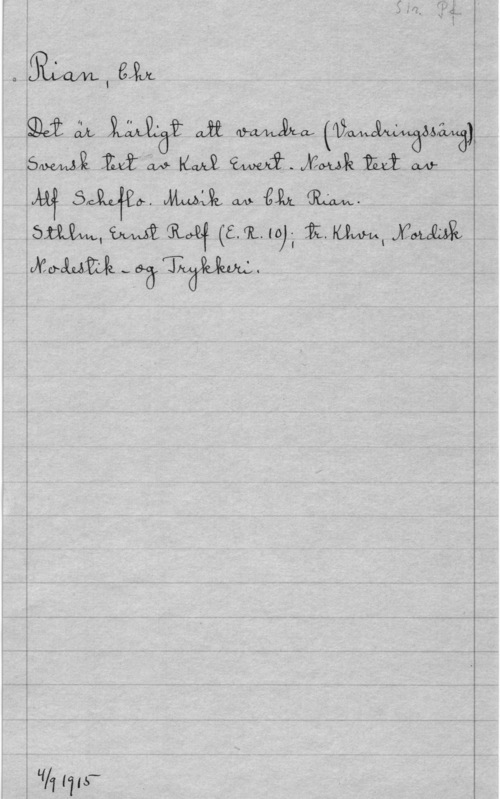 Sin. Pf
Rian, Chr
Det är härligt att vandra (Vandringssång)
Svensk text av Karl Ewert. Norsk text av
Alf Scheflo. Musik av Chr Rian.
Sthlm, Ernst Rolf (E.R.10); tr. Khvn, Nordisk
Nodestik- og Trykkeri.
4/9 1915